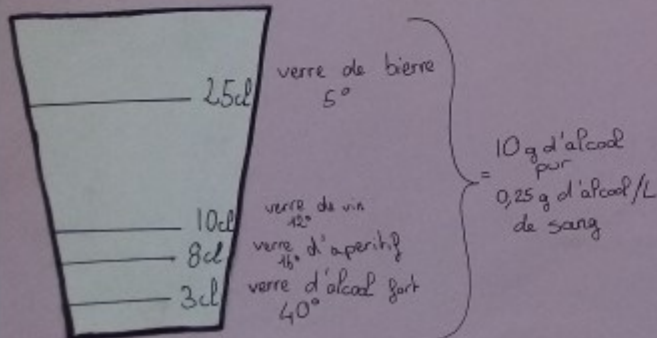 25cl
verre de bierre
5°
10cl
verre de vin
12°
8cl
verre d'aperitif
16°
3cl
verre d'alcool fort
40°
= 10g d'alcool
pur
0,25g d'alcool/L
de sang